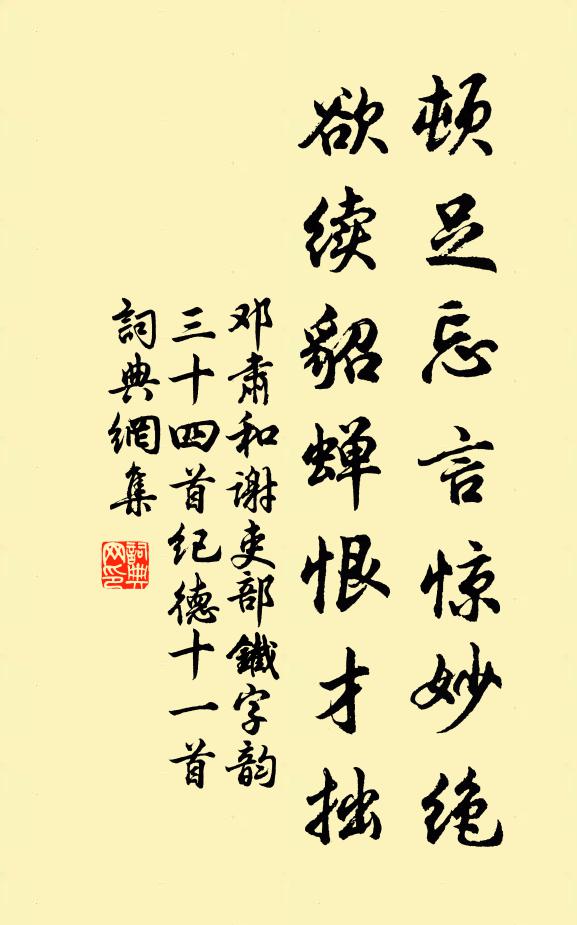 顿足忘言惊妙绝
欲续貂蝉恨才拙
邓肃和谢吏部鐵字韵
三十四首纪德十一首
詞典網集
詞典
网印